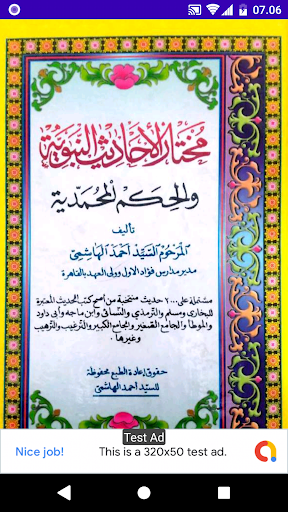 07.06
مختار الأحاديث النبوية
والحكم المحمدية
تأليف
المرحوم السيد أحمد الهاشمي
مدير مدارس فؤاد الاول وولى العهد بالقاهرة
مشتملة على ... حديث منتخبة من أصح كتب الحديث المعتبرة
للبخارى ومسلم والترمذي والنسائى وابن ماجه وأبى داود
والموطأ والجامع الصغير والجامع الكبير والترغيب والترهيب
وغيرها.
حقوق إعادة الطبع محفوظة
للسيد أحمد الهاشمي
Test Ad
Nice job!
This is a 320x50 test ad.